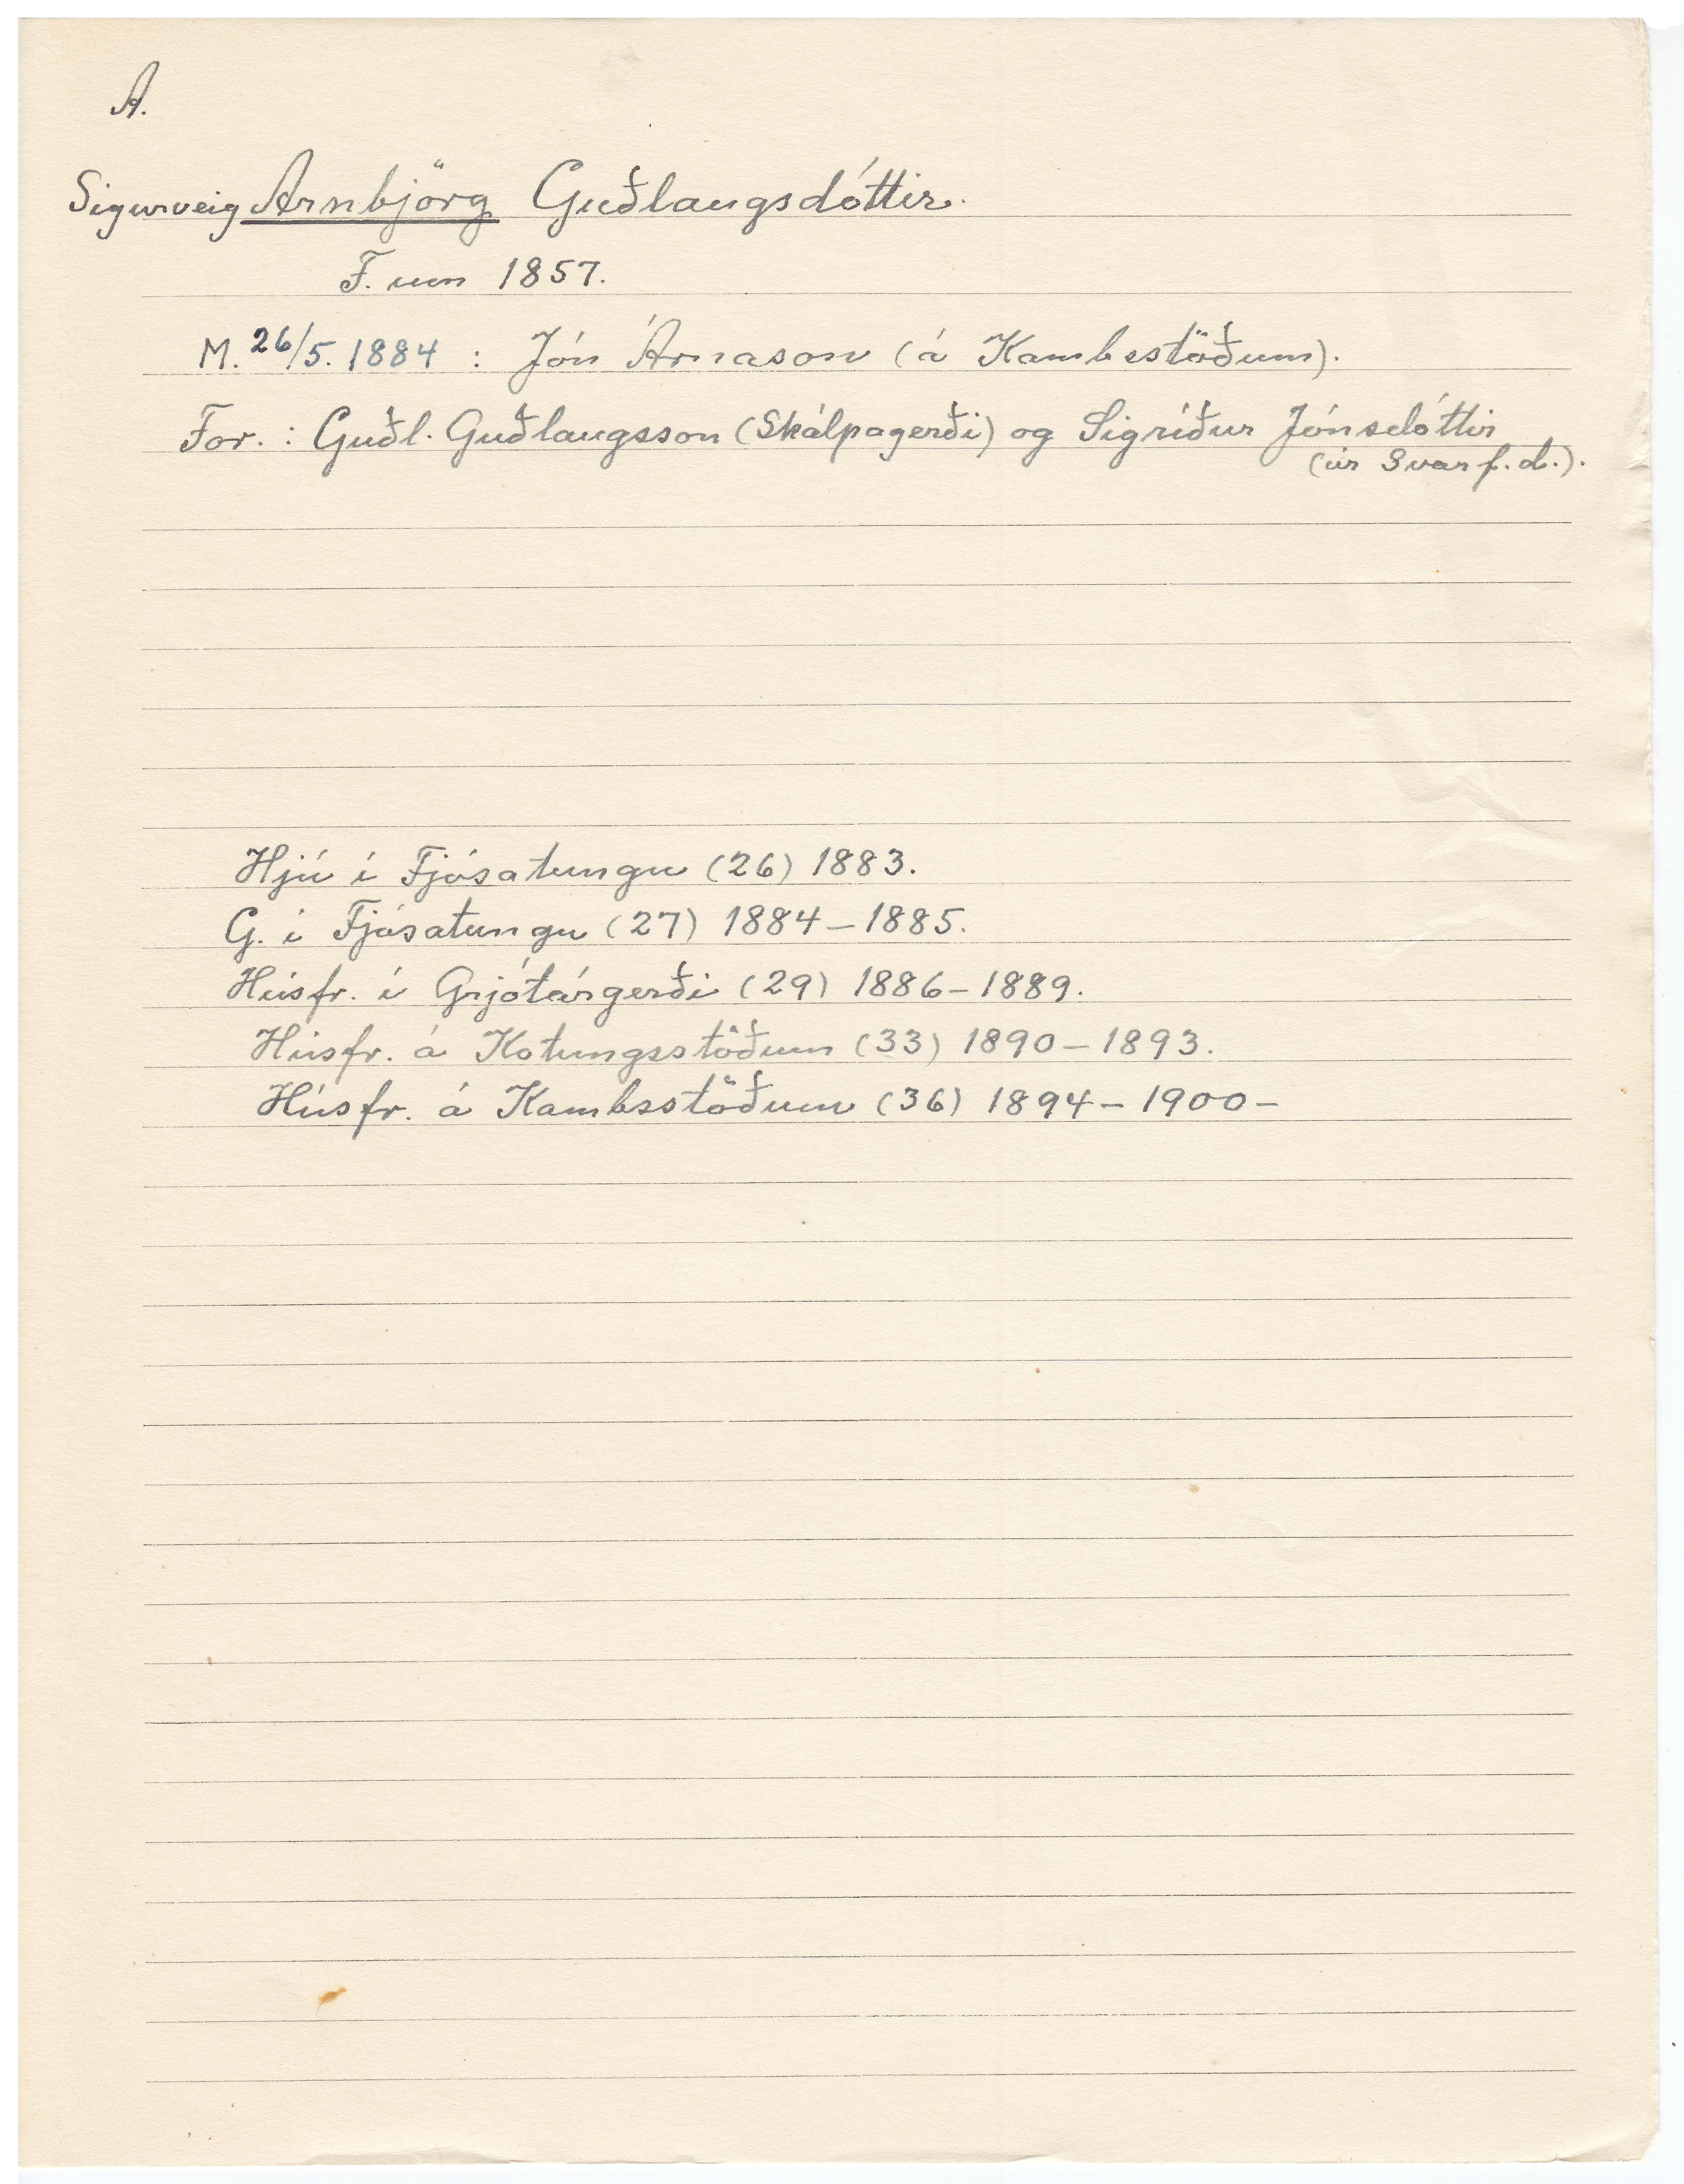 A.
Sigurveig Arnbjörg Guðlaugsdóttir.
F. um 1857.
M. 26/5. 1884 : Jón Árnason (á Kambsstöðum).
For. : Guðl. Guðlaugsson (Skálpagerði) og Sigríður Jónsdóttir
(úr Svarf.d.).
Hjú í Fjósatungu (26) 1883.
G. í Fjósatungu (27) 1884–1885.
Húsfr. í Grjótárgerði (29) 1886–1889.
Húsfr. á Kotungsstöðum (33) 1890–1893.
Húsfr. á Kambsstöðum (36) 1894–1900–